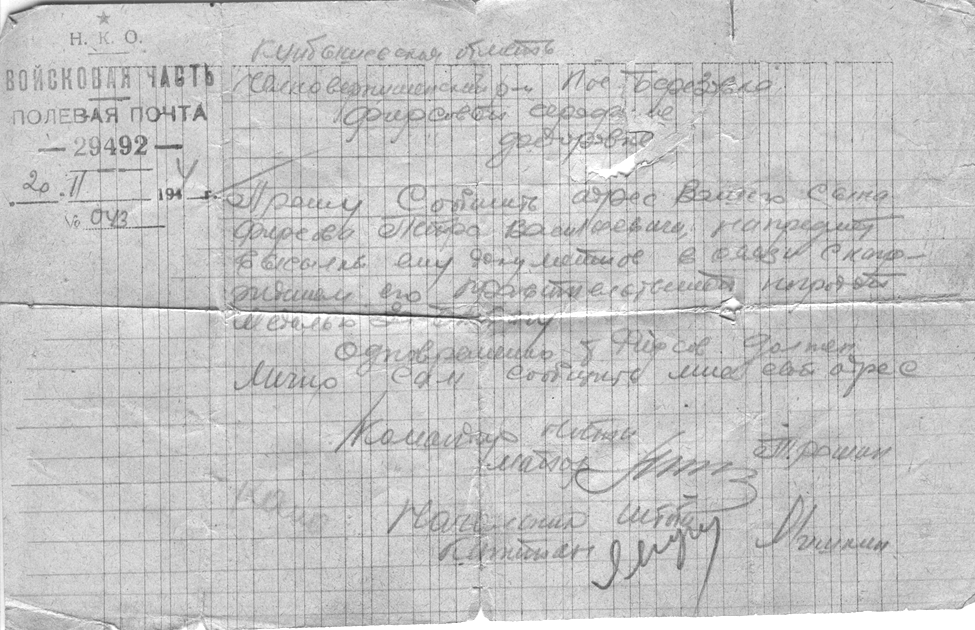 Н. К. О.
ВОЙСКОВАЯ ЧАСТЬ
ПОЛЕВАЯ ПОЧТА
— 29492 —
20. II 194 г.
№ 043
Куйбышевская область
р-н Пос. Березовка
Фирсовой
Прошу Сообщить адрес Вашего Сына
Фирсова Петра Васильевича, на предмет
высылки ему документов в связи с награ-
ждением его правительственной наградой
медалью
Одновременно т. Фирсов должен
Лично Сам сообщить мне свой адрес
Командир части
майор Трошин
Начальник штаба
Капитан